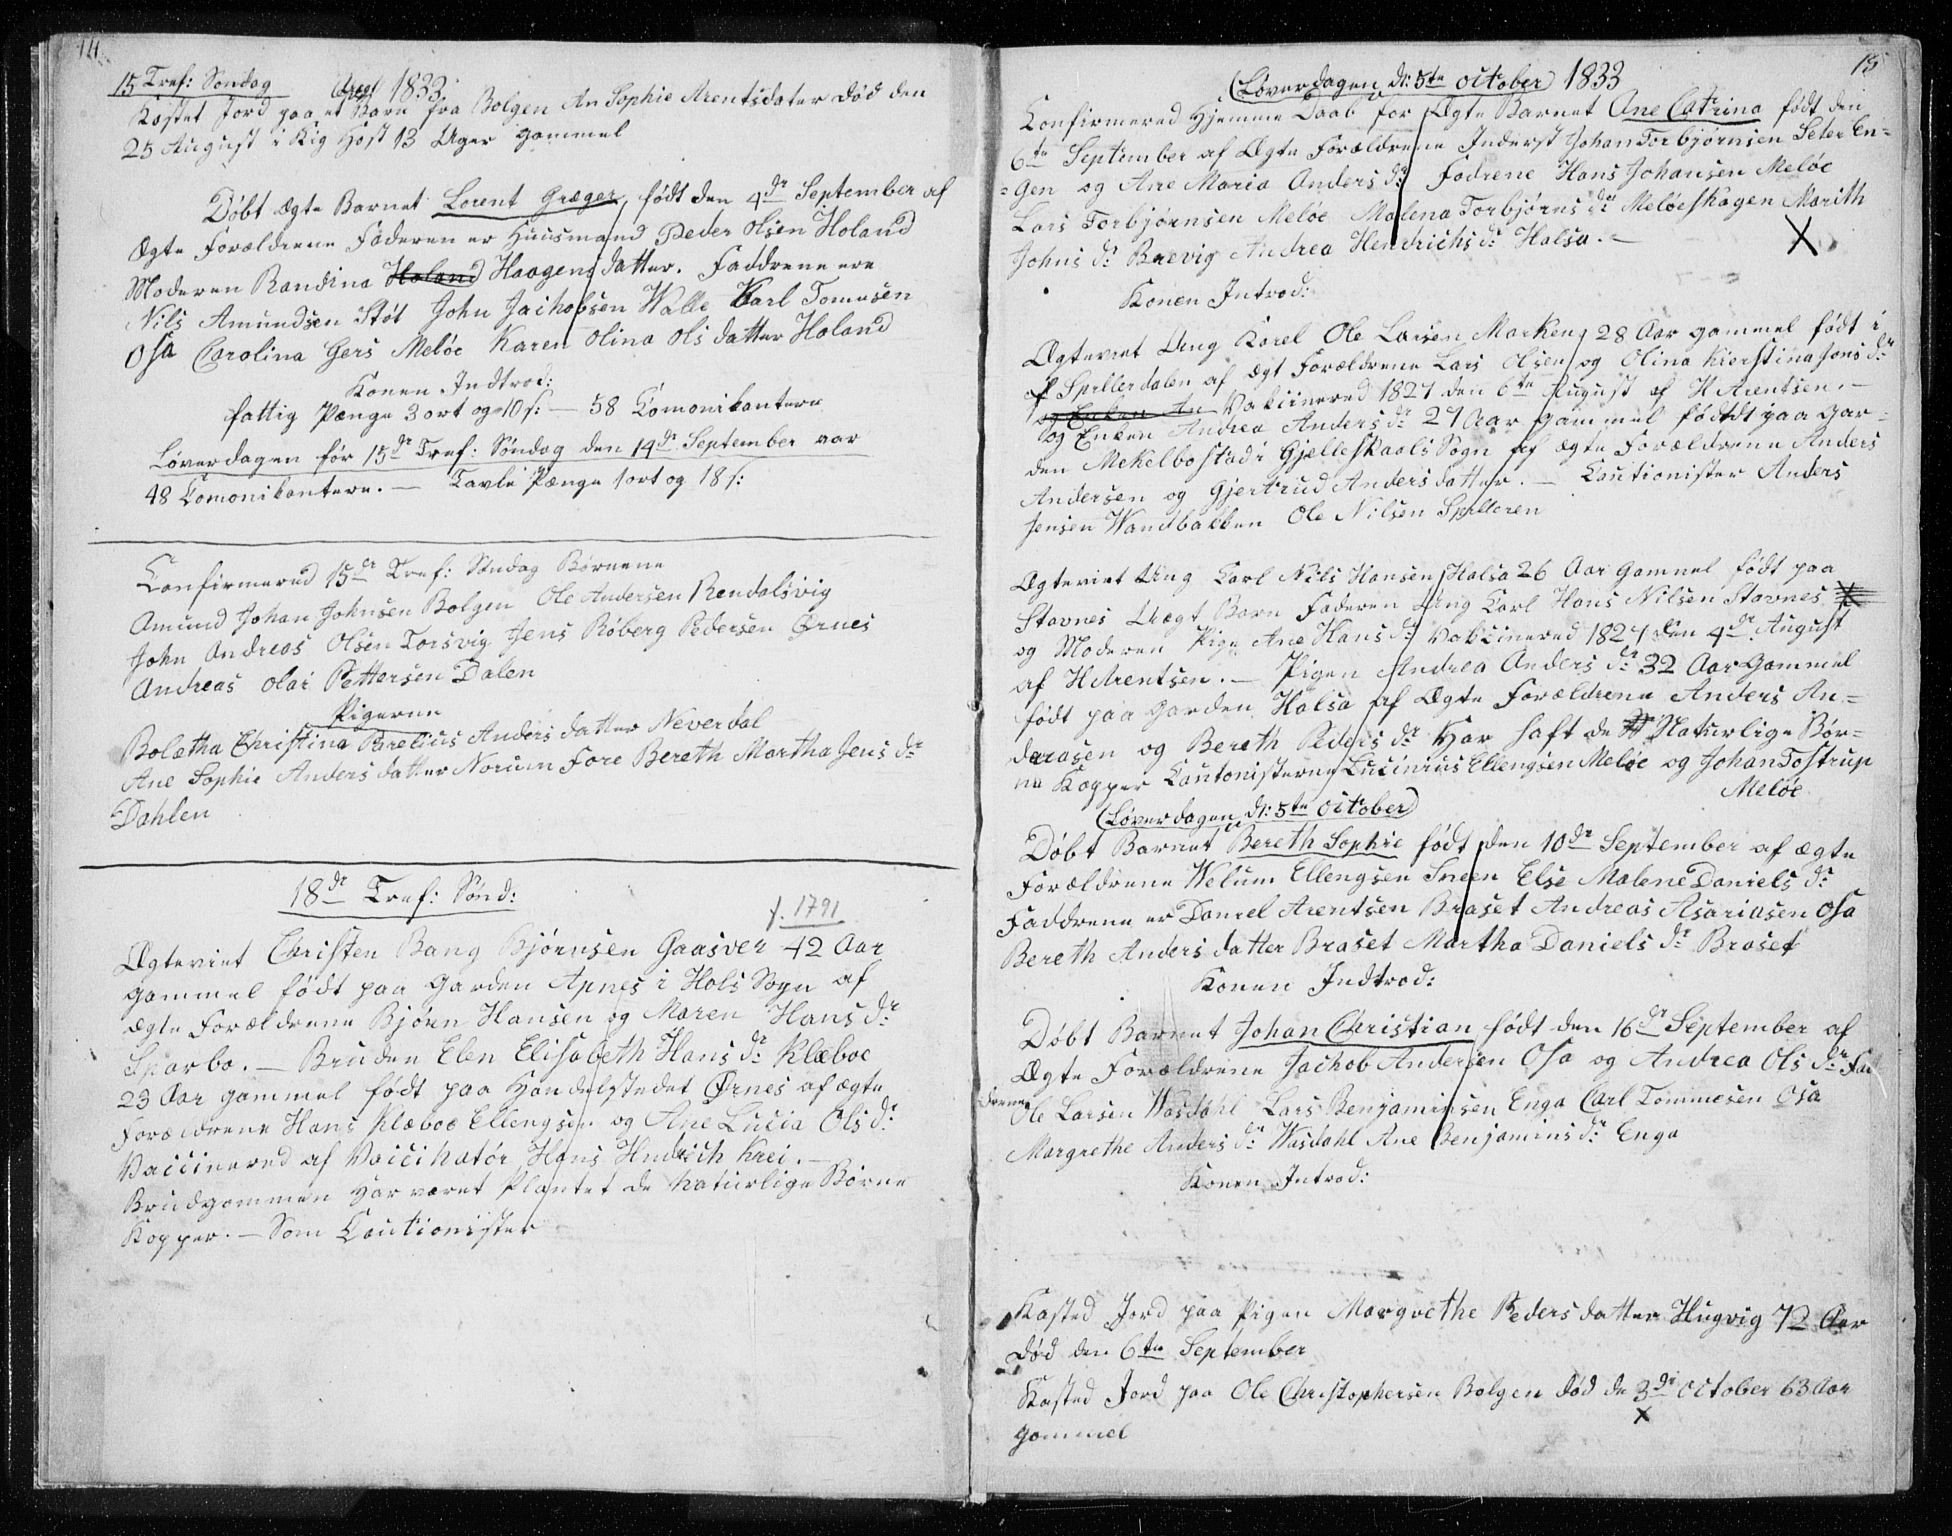 14.
15 Tref: Søndag 1833.
Kastet Jord paa et Barn fra Bolgen An Sophie Arentsdater død den
25 August i Kig Host 13 Uger gammel
Døbt Ægte Barnet Lorent Græger, født den 4de September af
Ægte Forældrene Faderen er Huusmand Peder Olsen Holand
Moderen Randina Holand Haagens datter. Faddrene ere
Nils Amundsen Støt John Jachobsen Walle Karl Tomesen
Osa Carolina Gers Meløe Karen Olina Ols datter Holand
Konen Indtrod:
fattig Penge 3 ort og 10 s: — 58 Comonikantere
Løverdagen før 15de Tref: Søndag den 14de September var
48 Comonikantere. — Tavle Penge 1 ort og 18 s:
Confirmered 15de Tref: Søndag Børnene
Amund Johan Johnsen Bolgen Ole Andersen Rendalsvig
John Andreas Olsen Torsvig Jens Røberg Pedersen Ørnes
Andreas Olai Pettersen Dalen
Pigerne
Boletha Christina Borelius Anders datter Neverdal
Ane Sophie Anders datter Norum Fore Bereth Martha Jens dr
Dahlen
18de Tref: Sønd:
f. 1791
Ægteviet Christen Bang Bjørnsen Gaasver 42 Aar
gammel født paa Garden Apnes i Hols Sogn af
ægte Forældrene Bjørn Hansen og Maren Hans dr
Sparbo. — Bruden Elen Elisabeth Hans dr Klæboe
23 Aar gammel født paa Handelstedet Ørnes af ægte
Forældrene Hans Klæboe Ellengsen og Ane Lucia Ols dr
Vaccinered af Vaccinatór Hans Hendrich Krei. —
Brudgommen Har været Plantet de Naturlige Børne
Kopper. — Som Cautionister
15
(Løverdagen d: 5te October) 1833
Confirmered Hjemme Daab for Ægte Barnet Ane Catrina født den
6te September af Ægte Forældrene Inderst Johan Torbjørnsen Seter En=
=gen og Ane Maria Anders dr Fadrene Hans Johansen Meløe
Lars Torbjørnsen Meløe Malena Torbjørns dr Meløeskagen Marith
Johns dr Brevig Andrea Hendrichs dr Halsa. —
Konen Introd:
Ægteviet Ung Karel Ole Larsen Marken 28 Aar gammel født i
Spellerdalen af ægt Forældrene Lars Olsen og Olina Kierstina Jons dr
og Enken An Vaccinered 1827 den 6te August af H Arentsen. —
og Enken Andrea Anders dr 27 Aar gammel født paa Gar=
den Mekelbostad i Gjelleskaals Sogn af ægte Forældrene Anders
Andersen og Gjertrud Anders datter. — Cautionister Anders
Jensen Wandbakken Ole Nilsen Spelleren
Ægteviet Ung Carl Nils Hansen Halsa 26 Aar Gamnel født paa
Stavnes Uægt Barn Faderen Ung Carl Hans Nilsen Stavnes
og Moderen Pige Ane Hans dr Vakcinered 1827 den 4de August
af H Arentsen. — Pigen Andrea Anders dr 32 Aar Gammel
født paa Garden Halsa af Ægte Forældrene Anders An=
derasen og Bereth Peders dr Har haft de Naturlige Bør=
ne Kopper Cautonisterne Lucinius Ellengsen Meløe og Johan Tostrup
Meløe
(Løverdagen d: 5te October)
Døbt Barnet Bereth Sophie født den 10de September af ægte
Forældrene Welum Ellengsen Sneen Else Malene Daniels dr
Faddrene er Daniel Arentsen Braset Andreas Asariasen Osa
Bereth Anders datter Braset Martha Daniels dr Braset
Konen Indtrod:
Døbt Barnet Johan Christian født den 16de September af
Ægte Forældrene Jachob Andersen Osa og Andrea Ols dr Fad
drene Ole Larsen Wasdahl Lars Benjaminsen Enga Carl Tommesen Osa
Margrethe Anders dr Wasdahl Ane Benjamins dr Enga
Konen Introd:
Kasted Jord paa Pigen Margrethe Peders datter Hugvig 72 Aar
død den 6te September
Kasted Jord paa Ole Christophersen Bolgen død de 3de October 63 Aar
gammel